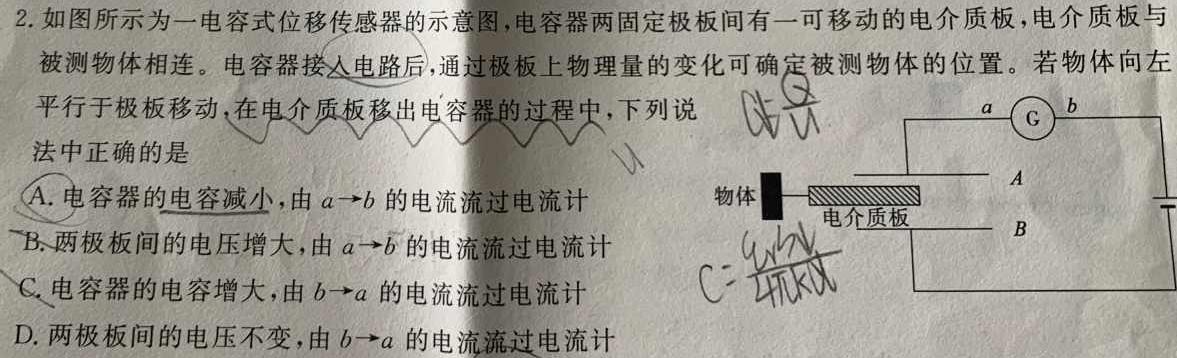 2. 如图所示为一电容式位移传感器的示意图,电容器两固定极板间有一可移动的电介质板,电介质板与
被测物体相连。电容器接入电路后,通过极板上物理量的变化可确定被测物体的位置。若物体向左
平行于极板移动,在电介质板移出电容器的过程中,下列说
法中正确的是
A. 电容器的电容减小,由 a→b 的电流流过电流计
B. 两极板间的电压增大,由 a→b 的电流流过电流计
C. 电容器的电容增大,由 b→a 的电流流过电流计
D. 两极板间的电压不变,由 b→a 的电流流过电流计
C↓=Q/U
U
a G b
A
物体
电介质板
B
C=εrS↓/4πkd